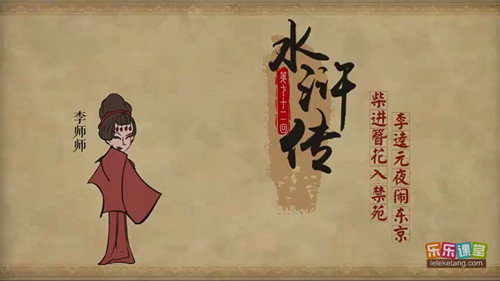 水浒传
第七十二回
柴进簪花入禁苑
李逵元夜闹东京
李师师
乐乐课堂
leleketang.com